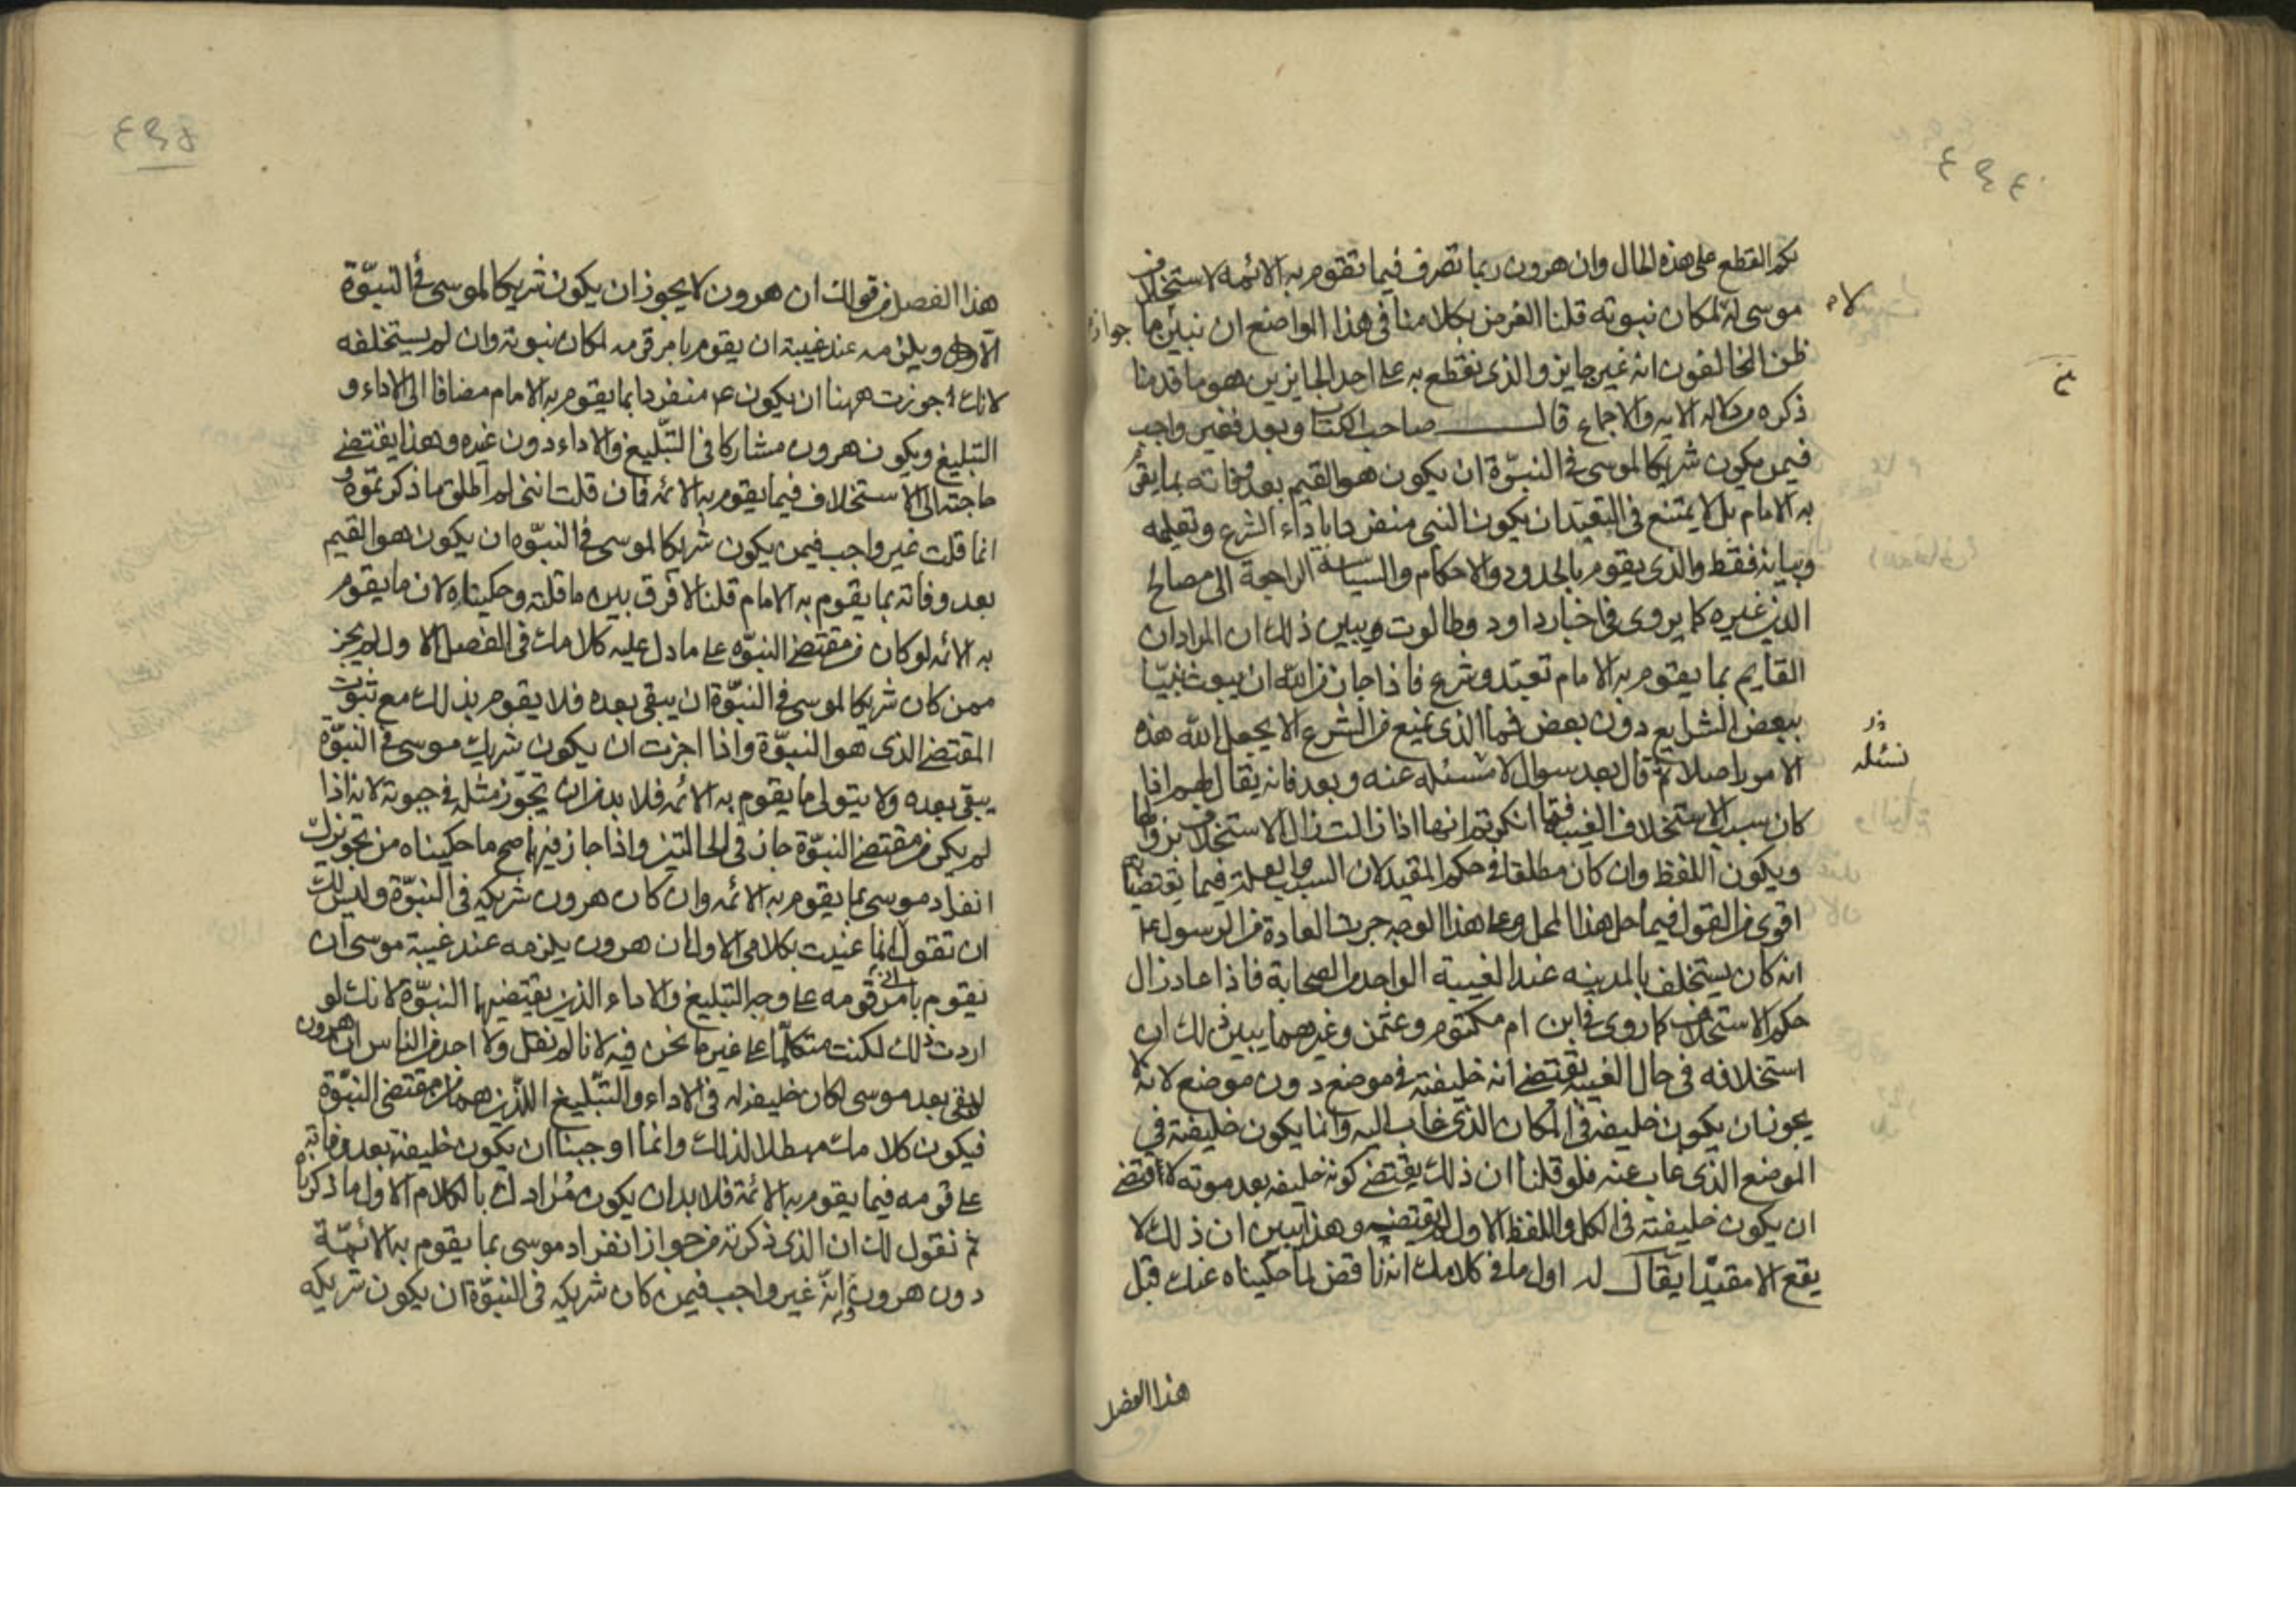 ٤٩٤
بكم القطع على هذه الحال وان هرون ربما تصرف فيما تقوم به الائمه لاستخلاف
موسى له لمكان نبوته قلنا الغرض بكلامنا في هذا الواضع ان نبين ما جواز
ظن المخالفون انه غير جايز والذى نقطع به على احد الجايزين هو ما قدمنا
ذكره من دلاله الايه والاجماع قال صاحب الكتاب وبعد فغير واجب
فيمن يكون شريكا لموسى في النبوّة ان يكون هو القيم بعد وفاته بما يقوم
به الامام بل لا يمتنع فى التعبّد ان يكون النبى منفردا باداء الشرع وتعليمه
وبيانه فقط والذى يقوم بالحدود والاحكام والسياسة الراجعة الى مصالح
الدين غيره كما يروى فى اخبار داود وطالوت ويبين ذلك ان المراد ان
القايم بما يقوم به الامام تعبّد وشرع فاذا جاز من الله ان يبعث نبيّا
ببعض الشرايع دون بعض فما الذى يمنع من الشرع الا يجعل الله هذه
الامور اصلا ثم قال بعد سوال لا نسئله عنه وبعد فانه يقال لهم اذا
كان سبب الاستخلاف الغيبة فما انكرتم انها اذا زالت زال الاستخلاف بزوالها
ويكون اللفظ وان كان مطلقا فى حكم المقيد لان السبب والعلة فيما يقتضيانه
اقوى من القول فيما حل هذا المحل وعلى هذا الوجه جرت العادة من الرسول ع
انه كان يستخلف بالمدينه عند الغيبة الواحد من الصحابة فاذا عاد زال
حكم الاستخلاف كما روى فى ابن ام مكتوم وعثمن وغيرهما يبين ذلك ان
استخلافه فى حال الغيبه يقتضى انه خليفته فى موضع دون موضع لانه لا
يجوز ان يكون خليفه فى المكان الذى غاب اليه وانما يكون خليفته في
الموضع الذى غاب عنه فلو قلنا ان ذلك يقتضى كونه خليفه بعد موته لاقتضى
ان يكون خليفته فى الكل واللفظ الاول لا يقتضيه وهذا يبين ان ذلك لا
يقع الا مقيّدا يقال له اول ما فى كلامك انه ناقض لما حكيناه عنك قبل
هذا الفصل
لا
نسئله
٤٩٥
هذا الفصل من قولك ان هرون لا يجوز ان يكون شريكا لموسى فى النبوّة
الا ويلزمه عند غيبته ان يقوم بامر قومه لمكان نبوته وان لم يستخلفه
لانك جوزت ههنا ان يكون ع منفردا بما يقوم به الامام مضافا الى الاداء و
التبليغ ويكون هرون مشاركا فى التبّليغ والاداء دون غيره وهذا يقتضى
حاجته الى الاستخلاف فيما يقوم به الائمه فان قلت اننى لم اطلق ما ذكرتموه و
انما قلت غير واجب فيمن يكون شريكا لموسى فى النبوّه ان يكون هو القيم
بعد وفاته بما يقوم به الامام قلنا لا فرق بين ما قلته وحكيناه لان ما يقوم
به الائمه لو كان من مقتضى النبوّه على ما دل عليه كلامك فى الفصل الاول لم يجز
ممن كان شريكا لموسى فى النبوّة ان يبقى بعده فلا يقوم بذلك مع ثبوت
المقتضى الذى هو النبوّة واذا اجزت ان يكون شريك موسى فى النبوّه
يبقى بعده ولا يتولى ما يقوم به الائمه فلا بد من ان تجوّز مثله فى حيوته لانه اذا
لم يكن من مقتضى النبوّة جاز فى الحالتين واذا جاز فيهما صح ما حكيناه من تجويزك
انفراد موسى بما يقوم به الائمه وان كان هرون شريكه فى النبوّة وليس لك
ان تقول انما عنيت بكلامى الاول ان هرون يلزمه عند غيبة موسى ان
يقوم بامر قومه على وجه التبليغ والاداء الذين يقتضيهما النبوّة لانك لو
اردت ذلك لكنت متكلّما على غير ما نحن فيه لانا لم نقل ولا احد من الناس ان هرون
لو بقى بعد موسى لكان خليفه له فى الاداء والتبّليغ اللّذين هما من مقتضى النبّوة
فيكون كلامك مبطلا لذلك وانما اوجبنا ان يكون خليفته بعد وفاته
على قومه فيما يقوم به الائمة فلا بد ان يكون مُرادك بالكلام الاول ما ذكرناه
ثم نقول لك ان الذى ذكرته من جواز انفراد موسى بما يقوم به الائمّة
دون هرون وانّه غير واجب فيمن كان شريكه فى النبوّة ان يكون شريكه